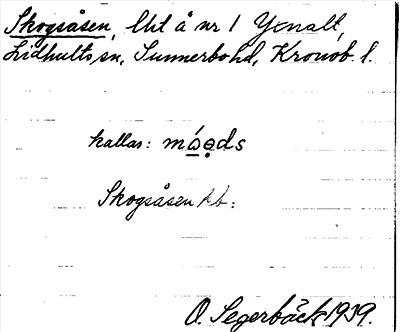 Skogsåsen, lht å nr 1 Yxnalt,
Lidhults sn, Sunnerbo hd, Kronob. l.
kallas: móọds
Skogsåsen kb:
O. Segerbäck 1939.